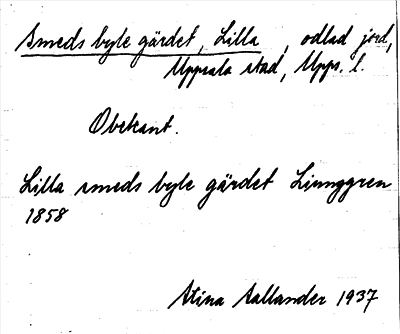 Smeds byle gärdet, Lilla, odlad jord,
Uppsala stad, Upps. l.
Obekant.
Lilla smeds byle gärdet Ljunggren
1858
Stina Aallander 1937